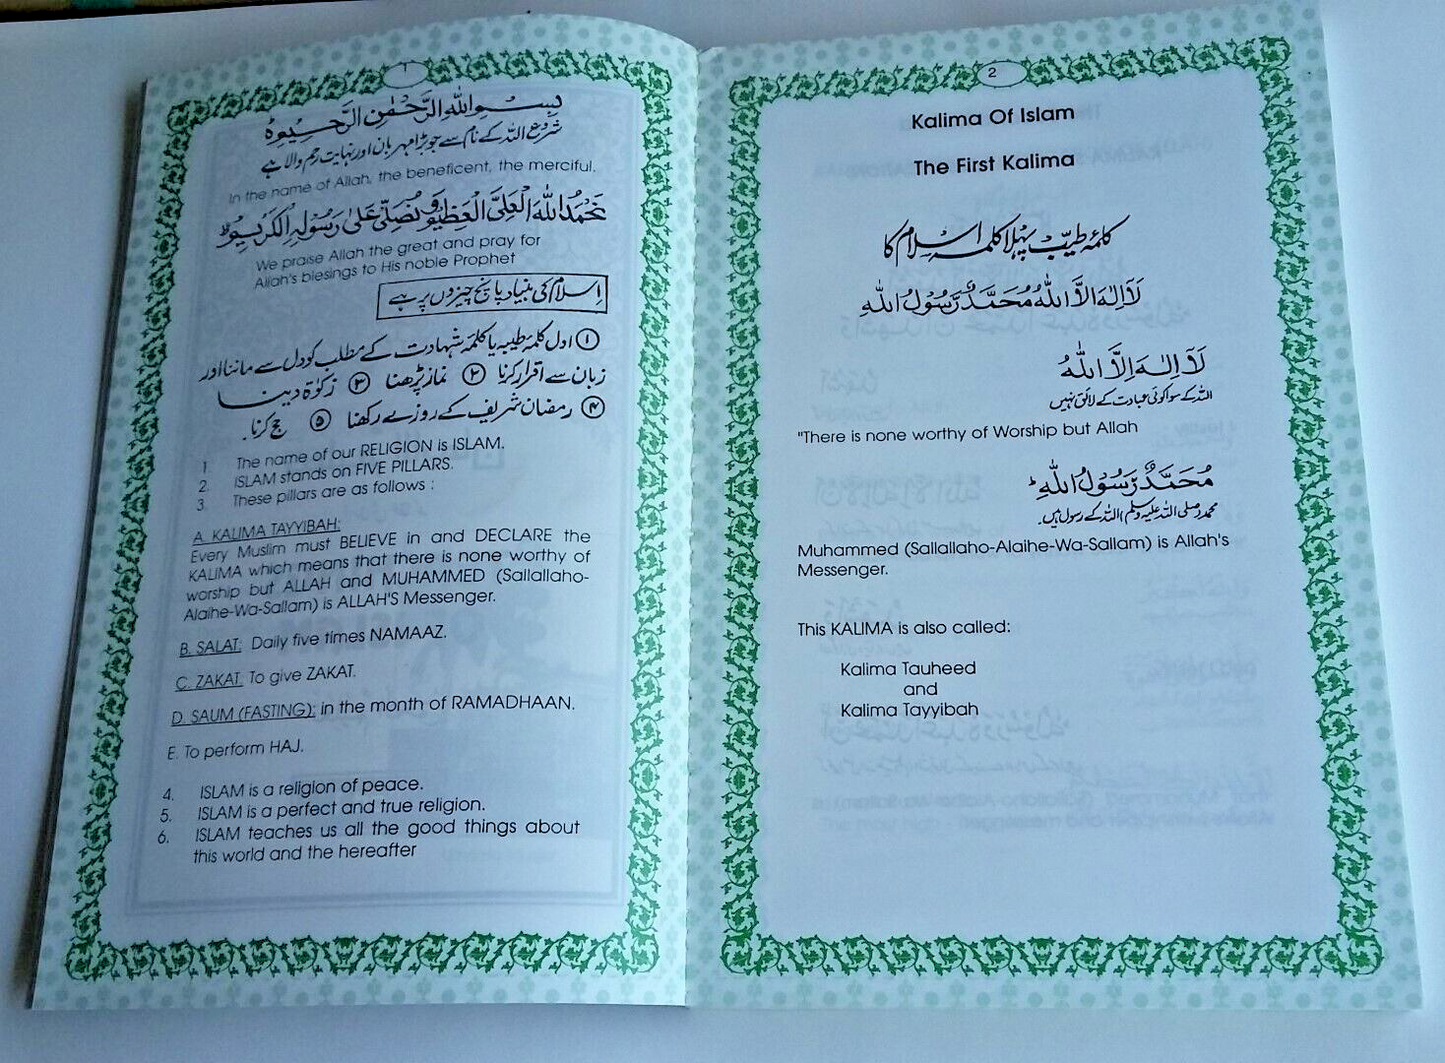 1
بِسْمِ اللهِ الرَّحْمٰنِ الرَّحِيْمِ
شروع اللہ کے نام سے جو بڑا مہربان اور نہایت رحم والا ہے
In the name of Allah, the beneficent, the merciful.
نَحْمَدُ اللهَ الْعَلِيَّ الْعَظِيْمَ وَنُصَلِّيْ عَلٰى رَسُوْلِهِ الْكَرِيْمِ
We praise Allah the great and pray for
Allah's blesings to His noble Prophet
اسلام کی بنیاد پانچ چیزوں پر ہے
① اول کلمۂ طیبہ یا کلمۂ شہادت کے مطلب کو دل سے ماننا اور
زبان سے اقرار کرنا ② نماز پڑھنا ③ زکوٰۃ دینا
④ رمضان شریف کے روزے رکھنا ⑤ حج کرنا۔
1 The name of our RELIGION is ISLAM.
2. ISLAM stands on FIVE PILLARS.
3. These pillars are as follows :
A. KALIMA TAYYIBAH:
Every Muslim must BELIEVE in and DECLARE the
KALIMA which means that there is none worthy of
worship but ALLAH and MUHAMMED (Sallallaho-
Alaihe-Wa-Sallam) is ALLAH'S Messenger.
B. SALAT: Daily five times NAMAAZ.
C. ZAKAT. To give ZAKAT.
D. SAUM (FASTING): in the month of RAMADHAAN.
E. To perform HAJ.
4. ISLAM is a religion of peace.
5. ISLAM is a perfect and true religion.
6. ISLAM teaches us all the good things about
this world and the hereafter
2
Kalima Of Islam
The First Kalima
کلمۂ طیّب پہلا کلمہ اسلام کا
لَآ اِلٰهَ اِلَّا اللهُ مُحَمَّدٌ رَّسُوْلُ اللهِ
لَآ اِلٰهَ اِلَّا اللهُ
اللہ کے سوا کوئی عبادت کے لائق نہیں
"There is none worthy of Worship but Allah
مُحَمَّدٌ رَّسُوْلُ اللهِ
محمد صلی اللہ علیہ وسلم اللہ کے رسول ہیں۔
Muhammed (Sallallaho-Alaihe-Wa-Sallam) is Allah's
Messenger.
This KALIMA is also called:
Kalima Tauheed
and
Kalima Tayyibah